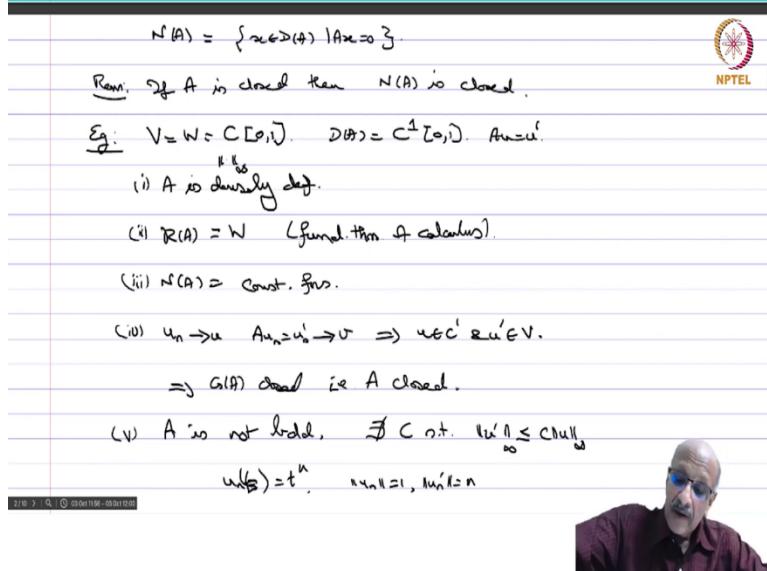 N(A) = {x∈D(A) | Ax=0}.
NPTEL
Rem: If A is closed then N(A) is closed.
Eg: V = W = C[0,1]. D(A) = C¹[0,1]. Au=u'.
‖ ‖∞
(i) A is densely def.
(ii) R(A) = W (fund. thm of calculus).
(iii) N(A) = const. fns.
(iv) uₙ → u Auₙ = uₙ' → v ⇒ u∈C' & u'∈V.
⇒ G(A) closed ie A closed.
(v) A is not bdd, ∄ C s.t. ‖u'‖∞ ≤ C‖u‖∞
uₙ(t) = tⁿ. ‖uₙ‖=1, ‖uₙ'‖=n
2/10 03 Oct 11:58 - 03 Oct 12:02